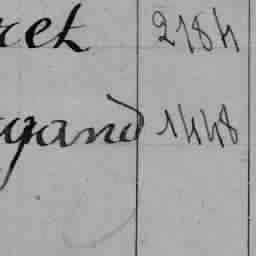 ret 2184
gand 1448